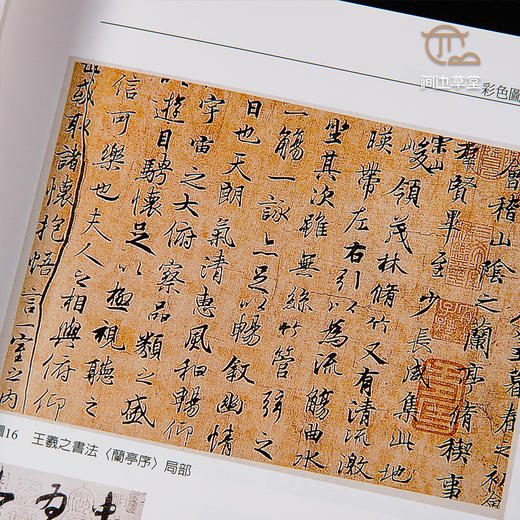 草堂
彩色圖
暮春之初會
會稽山陰之蘭亭脩禊事
羣賢畢至少長咸集此地
崇山
峻領茂林脩竹又有清流激
暎帶左右引以為流觴曲水
坐其次雖無絲竹管弦之
一觴一詠亦足以暢敘幽情
日也天朗氣清惠風和暢仰
宇宙之大俯察品類之盛
遊目騁懷足以極視聽之
信可樂也夫人之相與俯仰
或取諸懷抱悟言一室之內
圖16 王羲之書法〈蘭亭序〉局部